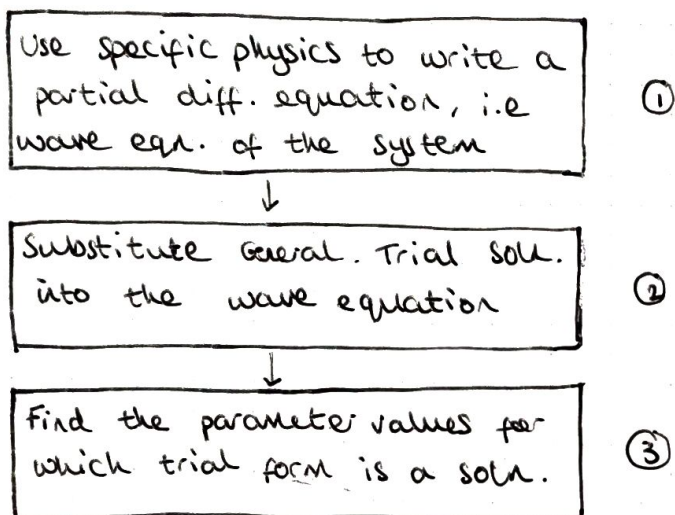 Use specific physics to write a
partial diff. equation, i.e
wave eqn. of the system
①
↓
Substitute General. Trial Soln.
into the wave equation
②
↓
Find the parameter values for
which trial form is a soln.
③